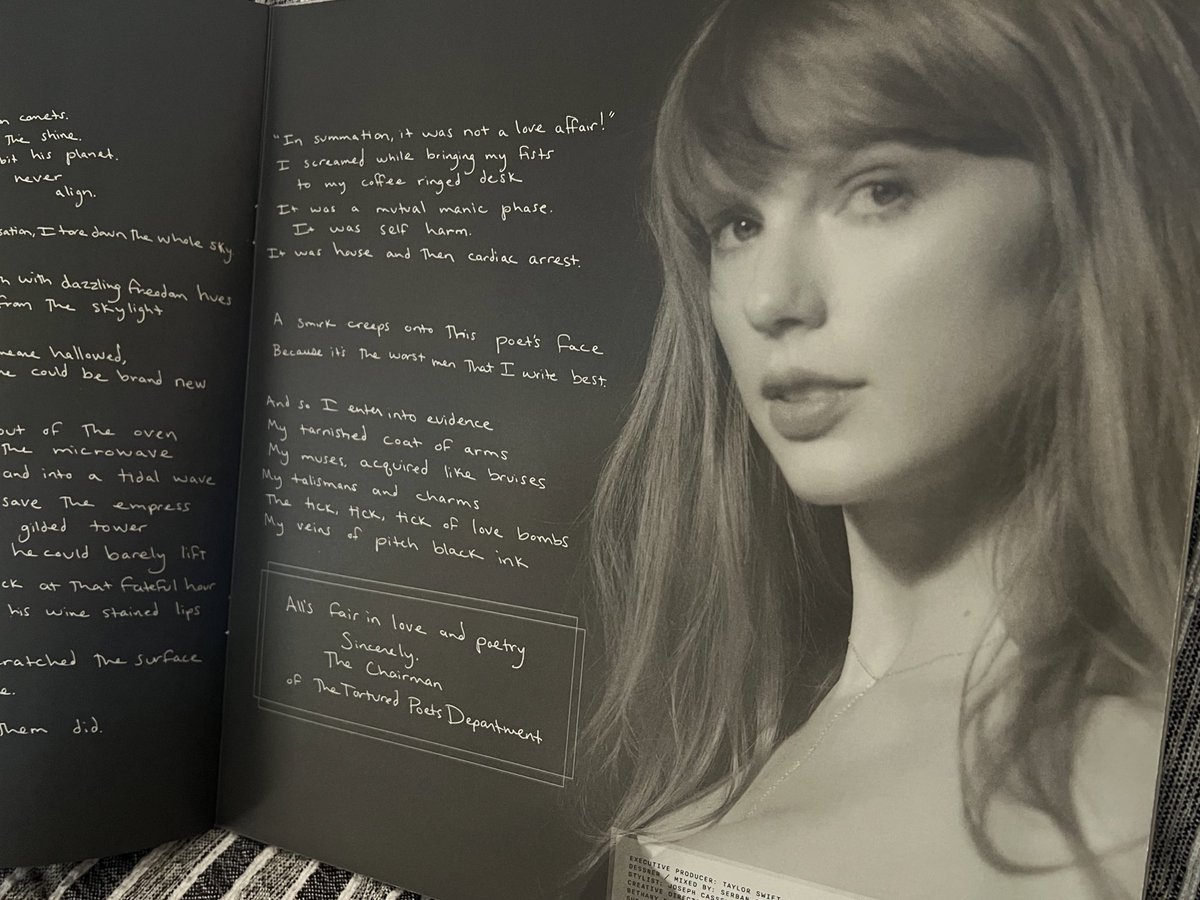 comets.
The shine.
his planet.
never
align.
I tore down The whole sky
with dazzling freedom hues
from The skylight
hallowed,
could be brand new
out of The oven
The microwave
and into a tidal wave
save The empress
gilded tower
he could barely lift
at That fateful hour
his wine stained lips
The surface
Them did.
"In summation, it was not a love affair!"
I screamed while bringing my fists
to my coffee ringed desk
It was a mutual manic phase.
It was self harm.
It was house and then cardiac arrest.
A smirk creeps onto This poet's face
Because it's The worst men That I write best.
And so I enter into evidence
My tarnished coat of arms
My muses, acquired like bruises
My talismans and charms
The tick, tick, tick of love bombs
My veins of pitch black ink
All's fair in love and poetry
Sincerely,
The Chairman
of The Tortured Poets Department
EXECUTIVE PRODUCER: TAYLOR SWIFT
DESSNER / MIXED BY: SERBAN
STYLIST: JOSEPH CASSE
CREATIVE DIRECT
BETHANY